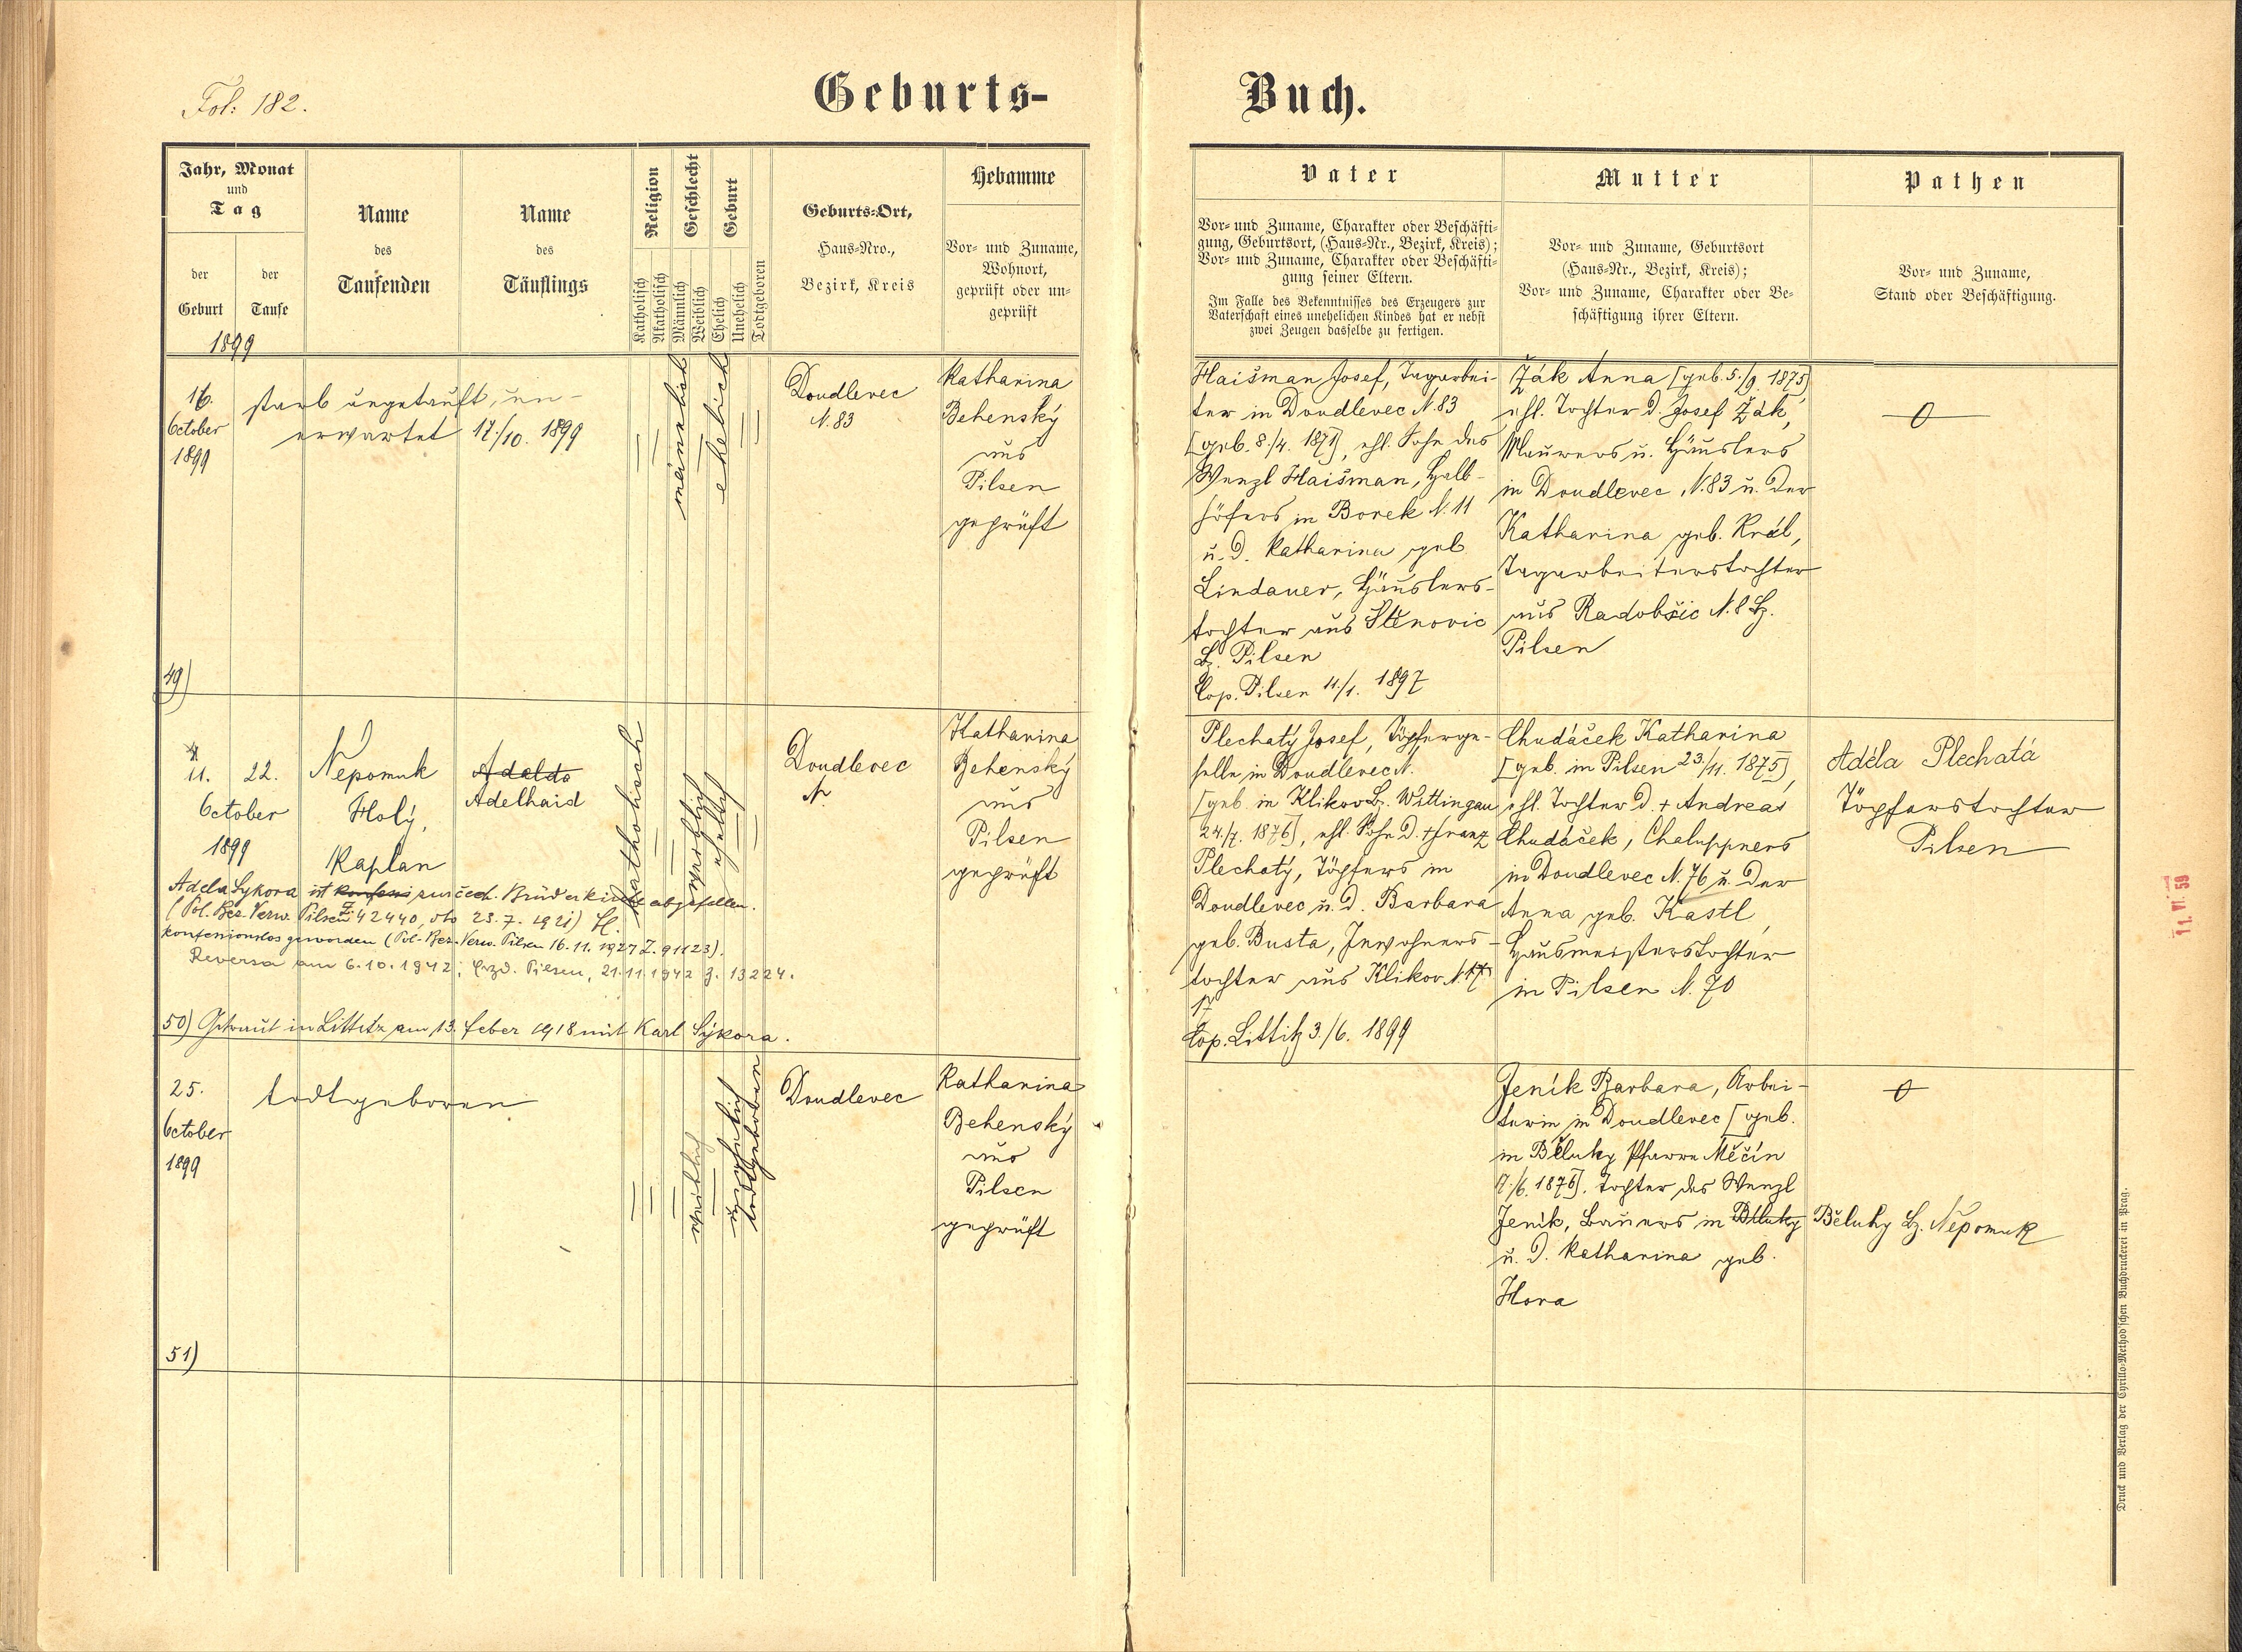 Fol: 182.
Geburts-
Buch.
Jahr, Monat
und
Tag
der
Geburt
der
Taufe
1899
Name
des
Taufenden
Name
des
Täuflings
Religion
Katholisch
Akatholisch
Geschlecht
Männlich
Weiblich
Geburt
Ehelich
Unehelich
Todtgeboren
Geburts-Ort,
Haus-Nro.,
Bezirk, Kreis
Hebamme
Vor- und Zuname,
Wohnort,
geprüft oder un-
geprüft
Vater
Vor- und Zuname, Charakter oder Beschäfti-
gung, Geburtsort, (Haus-Nr., Bezirk, Kreis);
Vor- und Zuname, Charakter oder Beschäfti-
gung seiner Eltern.
Im Falle des Bekenntnisses des Erzeugers zur
Vaterschaft eines unehelichen Kindes hat er nebst
zwei Zeugen dasselbe zu fertigen.
Mutter
Vor- und Zuname, Geburtsort
(Haus-Nr., Bezirk, Kreis);
Vor- und Zuname, Charakter oder Be-
schäftigung ihrer Eltern.
Pathen
Vor- und Zuname,
Stand oder Beschäftigung.
16.
October
1899
starb ungetauft, un-
erwartet 17./10. 1899
männlich
ehelich
Doudlevec
N. 83
Katharina
Behenský
aus
Pilsen
geprüft
Haišman Josef, Tagarbei-
ter in Doudlevec N. 83
[geb. 8./4. 1871], ehl. Sohn des
Wenzl Haišman, Halb-
höfers in Borek N. 11
u. d. Katharina geb
Lindauer, Häuslers-
tochter aus Stěnovic
Bz. Pilsen
Cop. Pilsen 11./1. 1897
Žák Anna [geb. 5./9. 1875]
ehl. Tochter d. Josef Žák,
Maurers u. Häuslers
in Doudlevec, N. 83 u. der
Katharina geb. Král,
Tagarbeiterstochter
aus Radobšic N. 8 Bz.
Pilsen
49)
11.
22.
October
1899
Nepomuk
Holý,
Kaplan
Adelda
Adelhaid
katholisch
weiblich
ehelich
Doudlevec
N.
Katharina
Behenský
aus
Pilsen
geprüft
Plechatý Josef, Töpferge-
selle in Doudlevec N.
[geb. in Klikov Bz. Wittingau
24./7. 1876], ehl. Sohn d. + Franz
Plechatý, Töpfers in
Doudlevec u. d. Barbara
geb. Busta, Inwohners-
tochter aus Klikov N. 17
17
Cop. Littitz 3./6. 1899
Chudáček Katharina
[geb. in Pilsen 23/11. 1875],
ehl. Tochter d. + Andreas
Chudáček, Chaluppners
in Doudlevec N. 76 u. der
Anna geb. Kastl,
Hausmeisterstochter
in Pilsen N. 70
Adéla Plechatá
Töpferstochter
Pilsen
Adela Sykora ist konfess zur čech. Brüderkirche abgefallen.
(Pol. Bez. Verw. Pilsen Z. 42440, dto 23. 7. 1921)
konfessionslos geworden (Pol.-Bez.-Verw. Pilsen 16. 11. 1927 Z. 91123).
Reversa am 6. 10. 1942; Erzd. Pilsen, 21. 11. 1942 Z. 13224.
50) Getraut in Littitz am 13. Feber 1918 mit Karl Sýkora.
25.
October
1899
todtgeboren
weiblich
unehelich
todtgeboren
Doudlevec
Katharina
Behenský
aus
Pilsen
geprüft
Jeník Barbara, Arbei-
terin in Doudlevec [geb.
in Běluky Pfarre Měčín
7./6. 1876], Tochter des Wenzl
Jeník, Bauers in Běluky Běluky Bz. Nepomuk
u. d. Katharina geb.
Hora
51)
11. VI. 59
Druck und Verlag der Cyrillo-Method'schen Buchdruckerei in Prag.